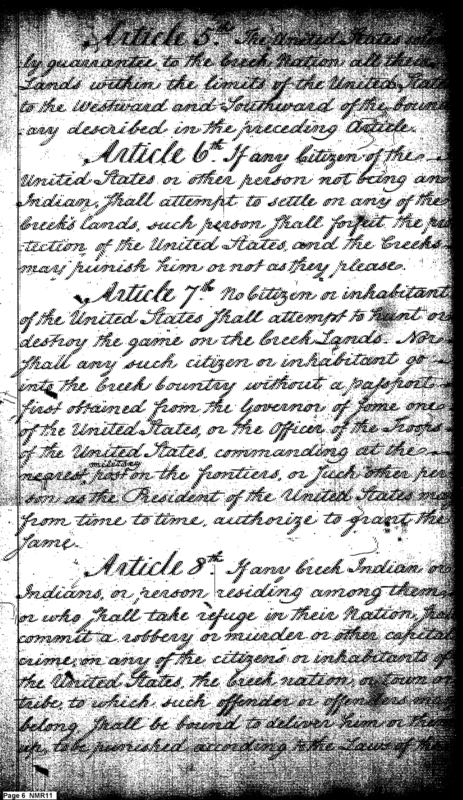 Article 5th. The United States
by guarrantee to the Creek Nation all their
Lands within the limits of the United States
to the Westward and Southward of the bound
ary described in the preceding Article.
Article 6th. If any Citizen of the
United States or other person not being an
Indian, shall attempt to settle on any of the
Creeks lands, such person shall forfeit the pro
tection of the United States, and the Creeks
may punish him or not as they please.
Article 7th. No Citizen or inhabitant
of the United States shall attempt to hunt or
destroy the game on the Creek Lands. Nor
shall any such citizen or inhabitant go
into the Creek Country without a passport
first obtained from the Governor of some one
of the United States, or the Officer of the Troops
of the United States, commanding at the
nearest military post on the frontiers, or such other per
son as the President of the United States may
from time to time, authorize to grant the
same.
Article 8th. If any Creek Indian or
Indians, or person residing among them,
or who shall take refuge in their Nation, shall
commit a robbery or murder or other capital
crime, on any of the citizens or inhabitants of
the United States, the Creek nation, or town or
tribe, to which such offender or offenders may
belong shall be bound to deliver him or them
up, to be punished according to the Laws of the
Page 6 NMR11